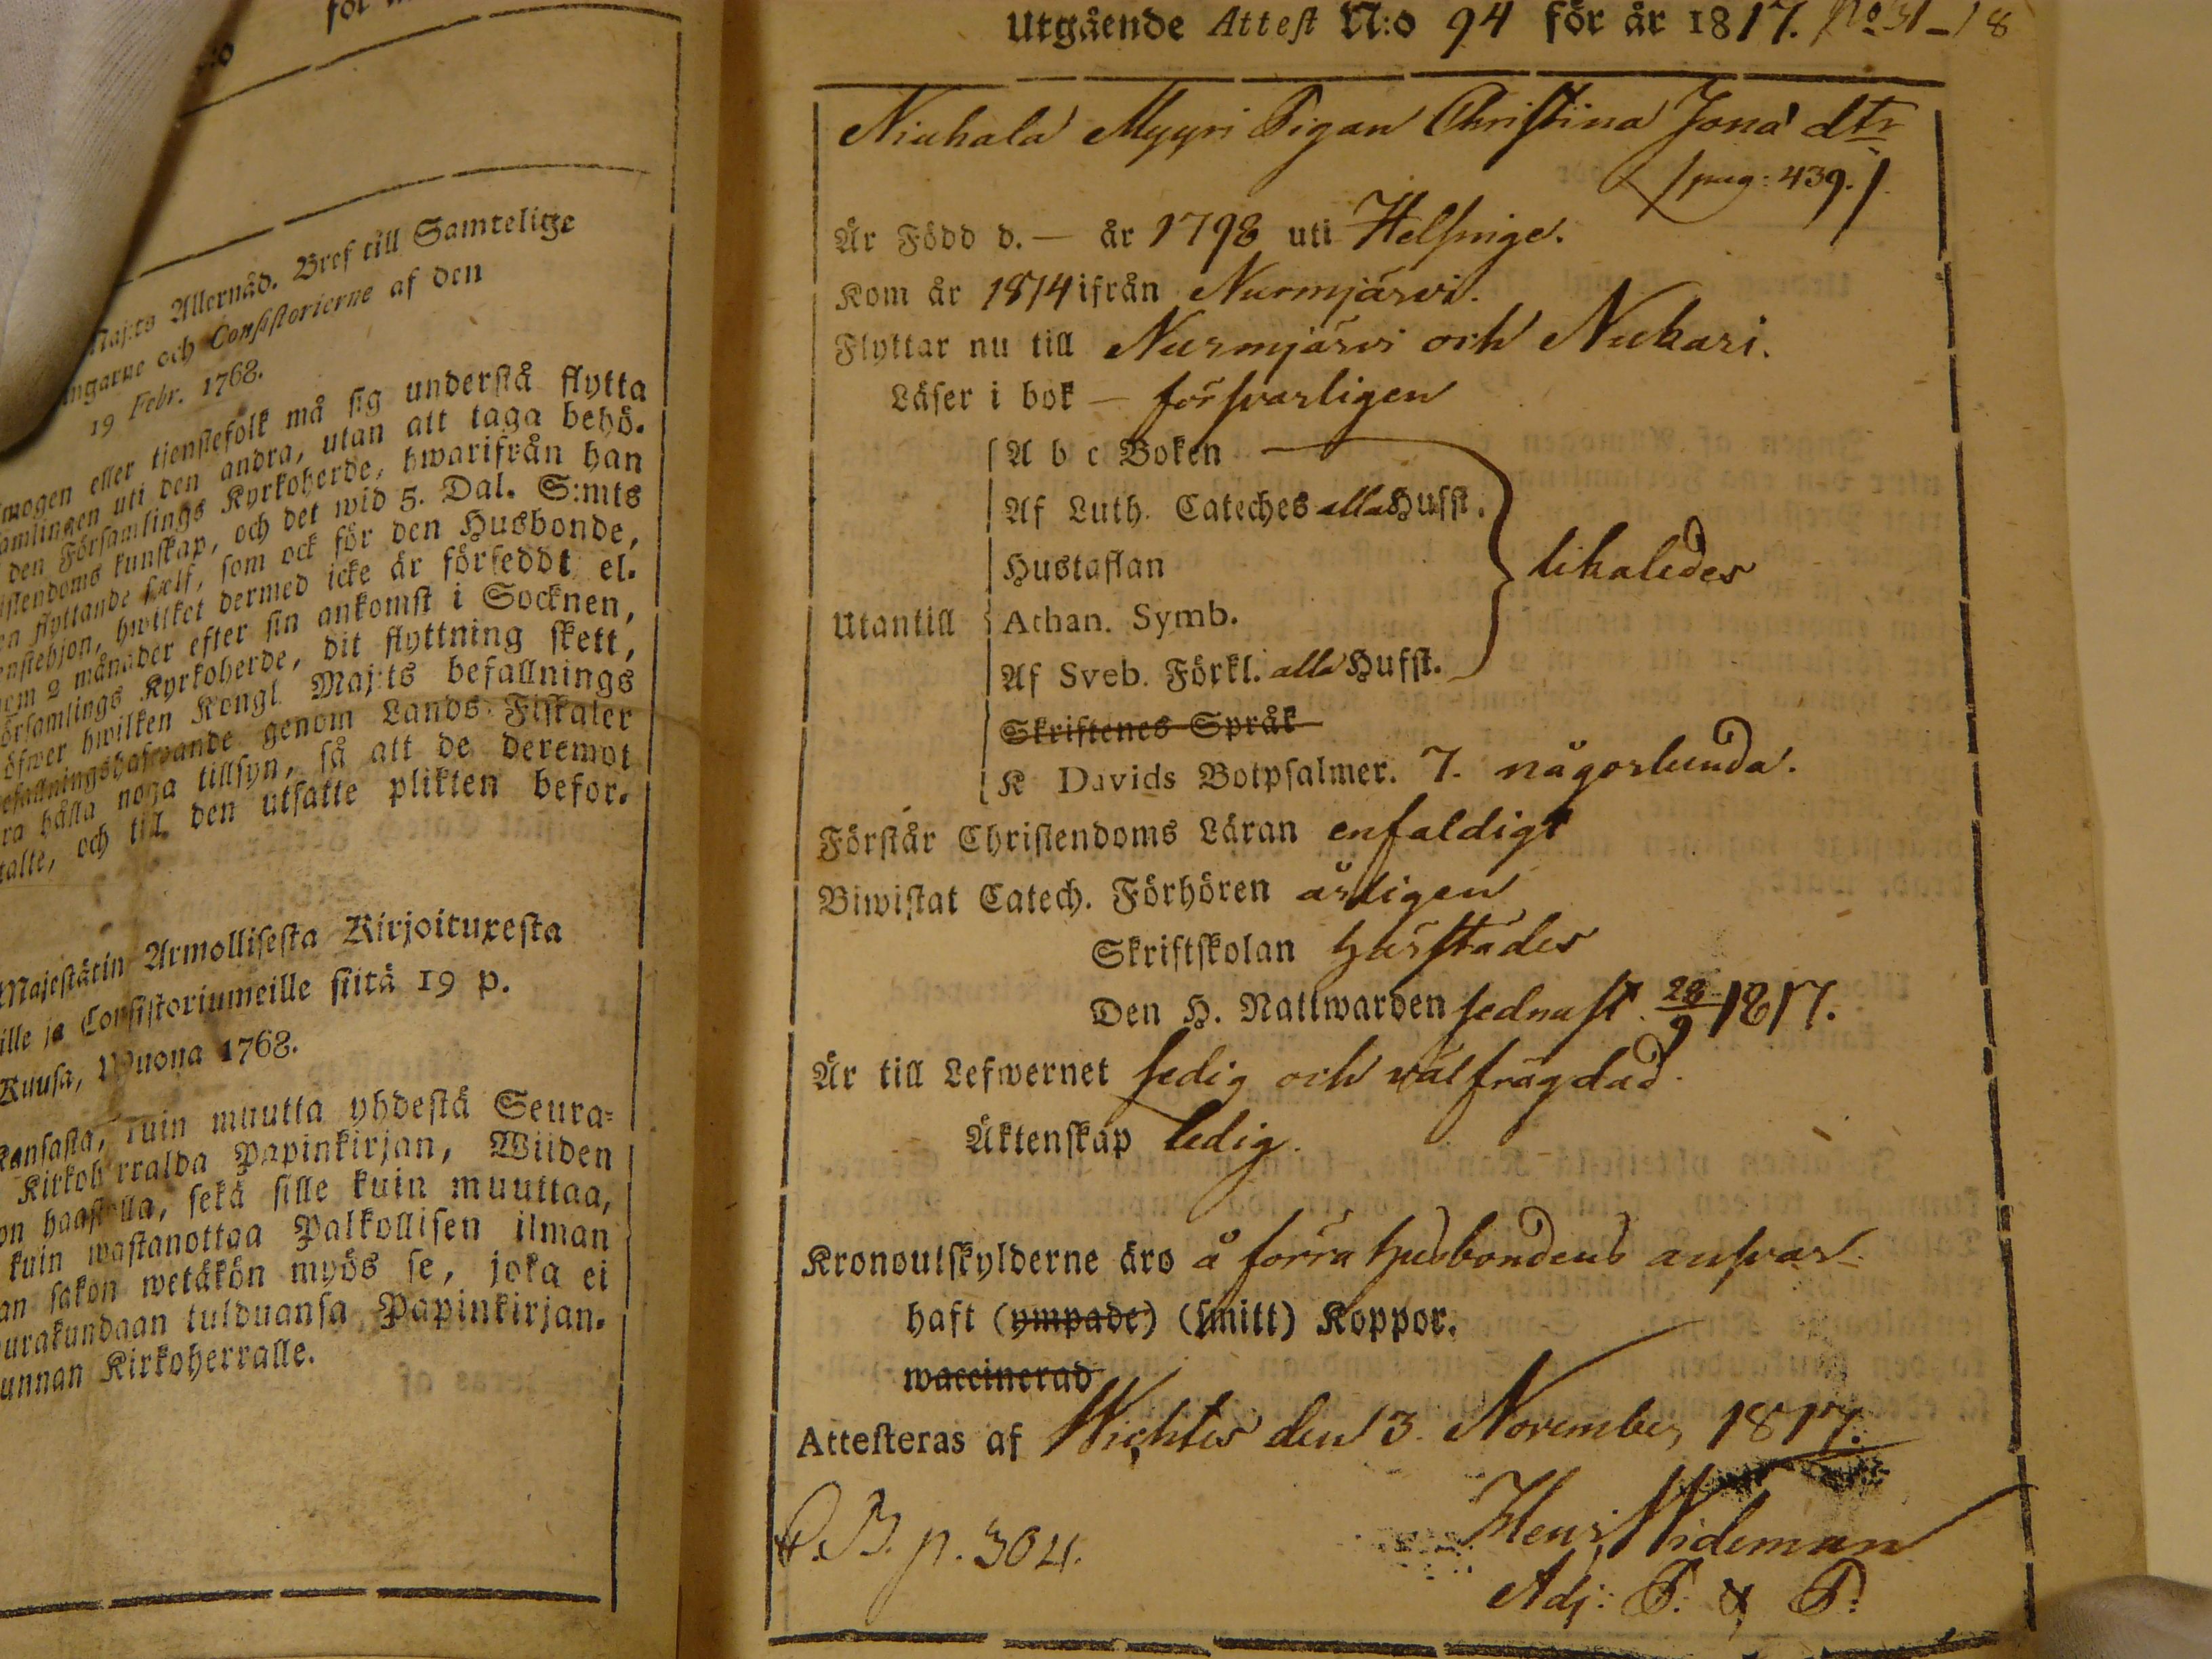 för
Maj:ts Allernåd. Bref till Samtelige
ngarne och Consistorierne af den
19 Febr. 1768.
mogen eller tienstefolk må sig understå flytta
amlingen uti den andra, utan att taga behö-
den Församlings Kyrkoherde, hwarifrån han
istendoms kunskap, och det wid 5. Dal. S:mts
en flyttande sielf, som ock för den Husbonde,
enstehjon, hwilket dermed icke är förseddt el-
om 2 månader efter sin ankomst i Socknen,
örsamlings Kyrkoherde, dit flyttning skett,
öfwer hwilken Kongl Maj:ts befallnings
efallningshafwande genom Lands-Fiskaler
ra hålla noga tillsyn, så att de deremot
talte, och till den utsatte plikten befor-
Majestätin Armollisesta Kirjoituxesta
ille ja Consistoriumeille siitä 19 p.
Kuusa, Wuona 1768.
Kansasta, kuin muutta yhdestä Seura-
Kirkoh rralda Papinkirjan, Wiiden
on haastolla, sekä sille kuin muuttaa,
kuin wastanottaa Palkollisen ilman
an sakon wetäkön myös se, joka ei
urakundaan tulduansa Papinkirjan.
unnan Kirkoherralle.
Utgående Attest N:o 94 för år 1817. No 31-18
Niuhala Myyri Pigan Christina Jona dtr
/pag: 439./
Är Född d. — år 1798 uti Helsinge.
Kom år 1814 ifrån Nurmjärvi.
Flyttar nu till Nurmjärvi och Nukari.
Läser i bok — försvarligen
A b c Boken
Af Luth. Cateches alla Hufst.
Hustaflan likaledes
Utantill Athan. Symb.
Af Sveb. Förkl. alla Hufst.
Skriftenes Språk
K Davids Botpsalmer. 7. någorlunda.
Förstår Christendoms Läran enfaldigt
Biwistat Catech. Förhören årligen
Skriftskolan härstädes
Den H. Nattwarden sednast 28/9 1817.
Är till Lefwernet sedig och välfrägdad.
Äktenskap ledig.
Kronoutskylderne äro å förra husbondens ansvar
haft (ympade) (smitt) Koppor.
waccinerad
Attesteras af Wichtis den 3. November 1817.
Henr. Wideman
P.B. p. 304.
Adj: P. & P.